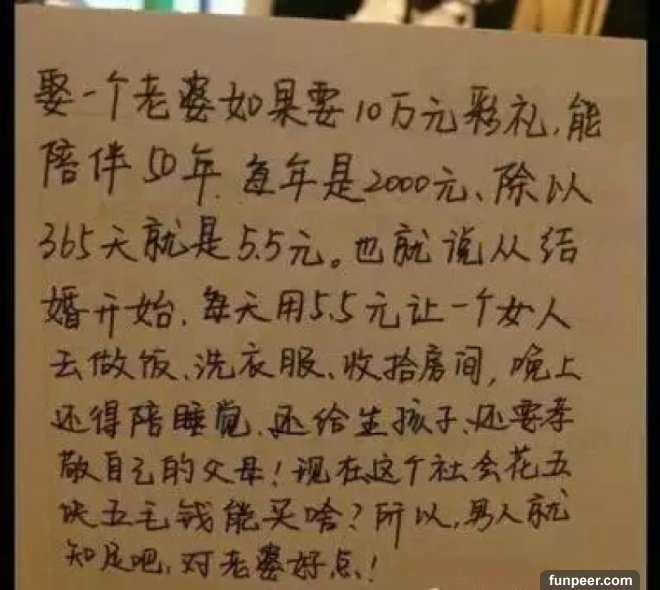 娶一个老婆如果要10万元彩礼,能
陪伴50年.每年是2000元、除以
365天就是5.5元。也就说从结
婚开始,每天用5.5元让一个女人
去做饭、洗衣服、收拾房间,晚上
还得陪睡觉、还给生孩子、还要孝
敬自己的父母!现在这个社会花五
块五毛钱能买啥?所以,男人就
知足吧,对老婆好点!
funpeer.com